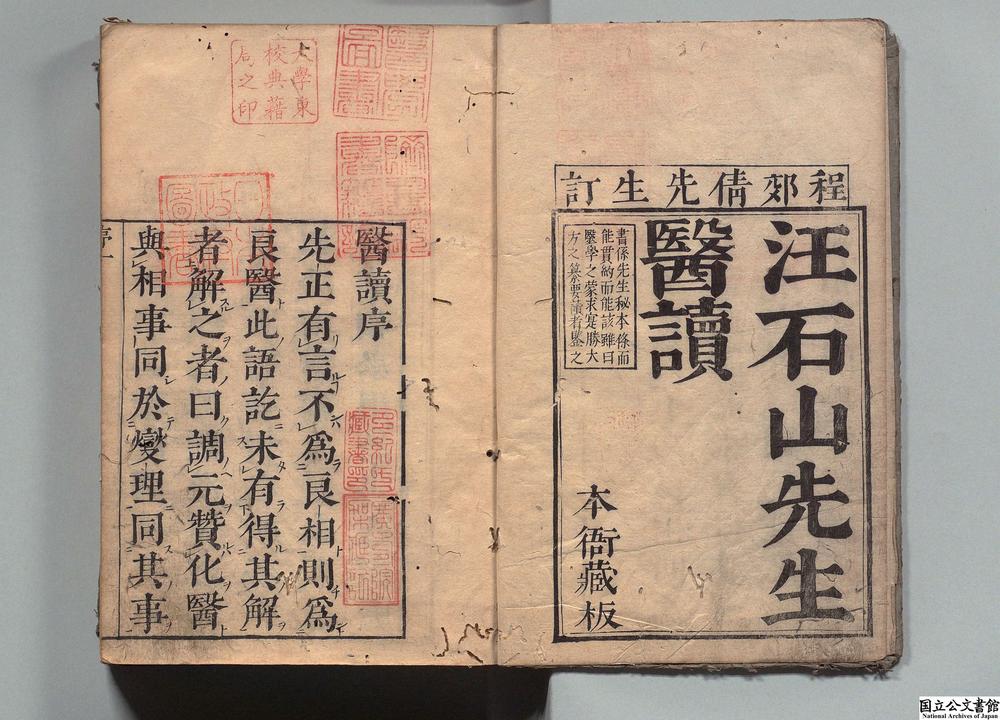 程郊倩先生訂
汪石山先生
醫讀
書係先生秘本條而
能貫約而能該雖曰
醫學之蒙求寔勝大
方之纂要讀者鑒之
本衙藏板
醫讀序
先正有言不爲良相則爲
良醫此語訖未有得其解
者解之者曰調元贊化醫
與相事同於燮理同其事
序一
大學東
校典藉
局之印
国立公文書館
National Archives of Japan